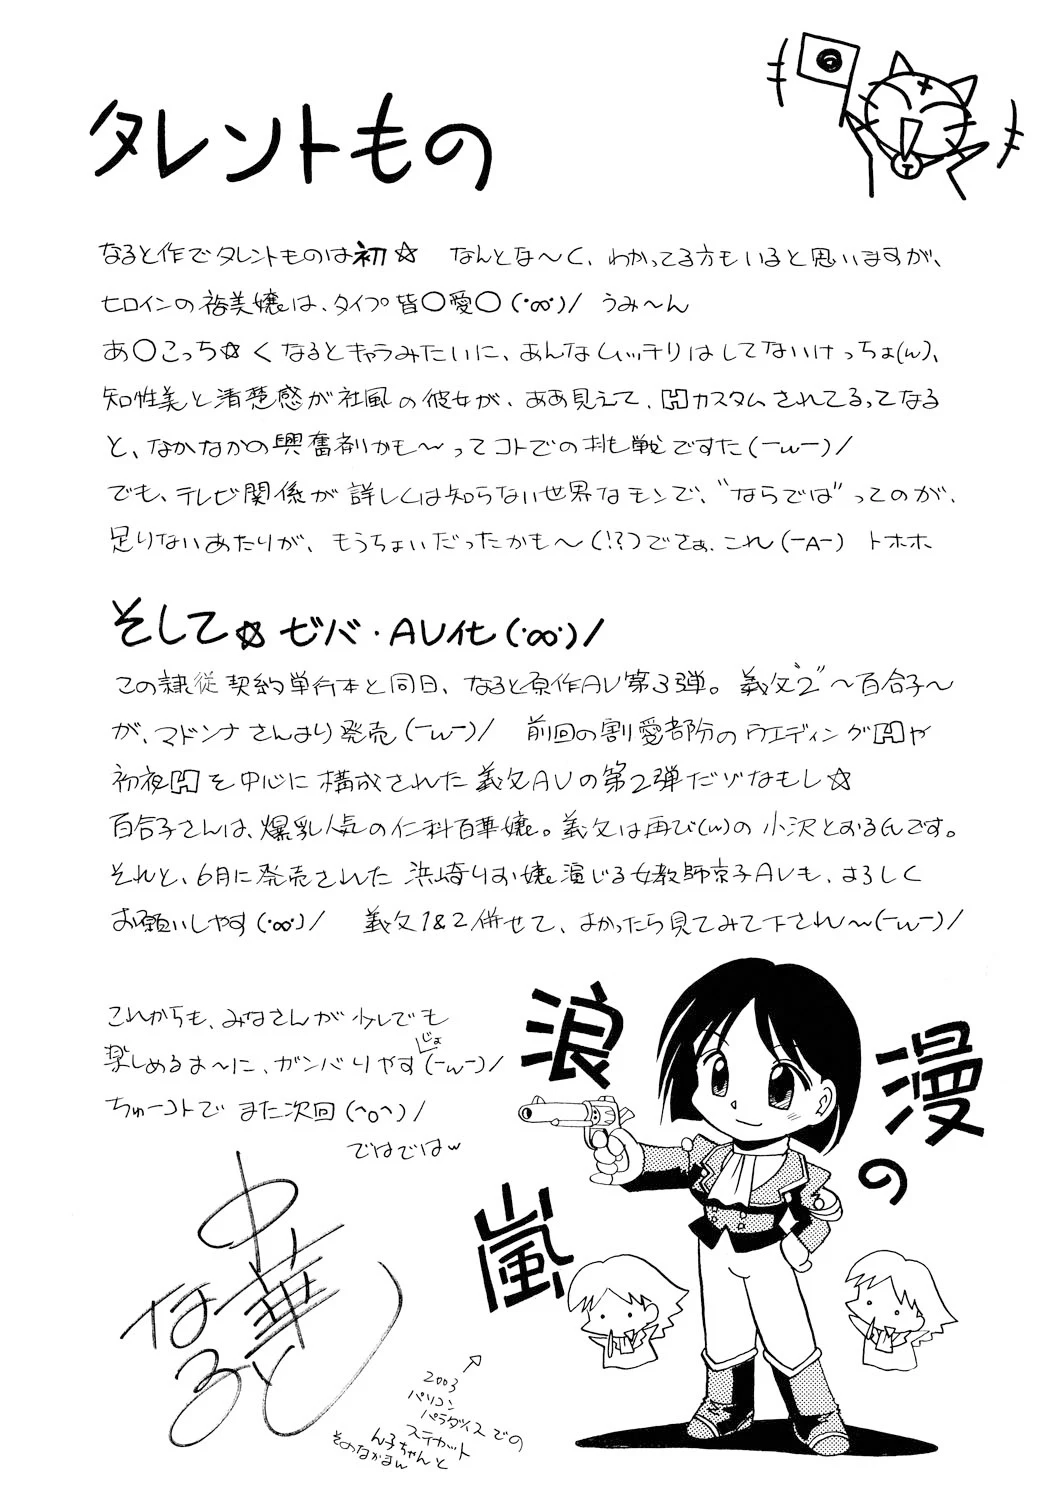 タレントもの
なると作でタレントものは初☆　なんとな～く、わかってる方もいると思いますが、
ヒロインの裕美嬢は、タイプ皆〇愛〇(·∞·)/ うみ～ん
あ〇こっち☆くなるとキャラみたいに、あんなムッチリはしてないけっちょ(w)、
知性美と清楚感が社風の彼女が、ああ見えて、Hカスタムされてるってなる
と、なかなかの興奮剤かも～ってコトでの挑戦ですた(ーwー)/
でも、テレビ関係が詳しくは知らない世界なモンで、"ならでは"ってのが、
足りないあたりが、もうちょいだったかも～(!?)でさぁ、これ(ーAー)　トホホ
そして☆ ビバ・AV化(·∞·)/
この隷従契約単行本と同日、なると原作AV第3弾。義父"2"～百合子～
が、マドンナさんより発売(ーwー)/　前回の割愛部分のウエディングHや
初夜Hを中心に構成された義父AVの第2弾だゾなもし☆
百合子さんは、爆乳人気の仁科百華嬢。義父は再び(w)の小沢とおるんです。
それと、6月に発売された 浜崎りお嬢演じる女教師京子AVも、よろしく
お願いしやす(·∞·)/　義父1&2併せて、よかったら見てみて下され～(ーwー)/
これからも、みなさんが少しでも
楽しめるよーに、ガンバりやす(ーwー)/
じょ
ちゅーコトで また次回(^o^)/
ではではw
中華
なると
浪
漫
の
嵐
2003
パソコン
パラダイスでの
ステカット
ん子ちゃんと
そのなかまw